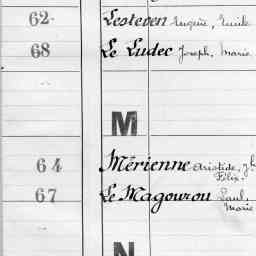 62 Lesteven Eugène, Emile
68 Le Ludec Joseph, Marie
M
64 Mérienne Aristide, J.
Félix
67 Le Magourou Paul,
Marie
N